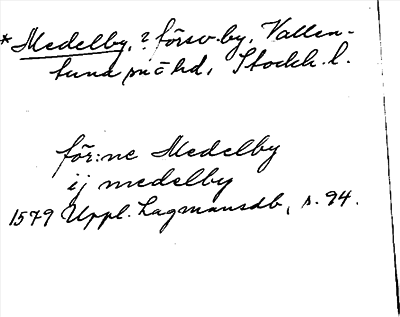 *Medelby, ? försv. by, Vallen-
tuna sn o hd, Stockh. l.
för:ne Medelby
ij medelby
1579 Uppl. Lagmansdb, s. 94.